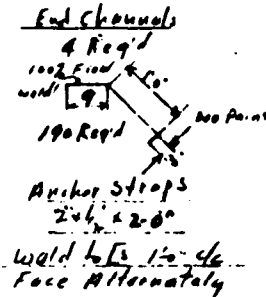 End Channels
4 Req'd
100% Field
weld
9
1'-0"
No Paint
190 Req'd
3"
Anchor Straps
2" x ¼" x 2'-0"
Weld to [s 1'-0" c/c
Face Alternately